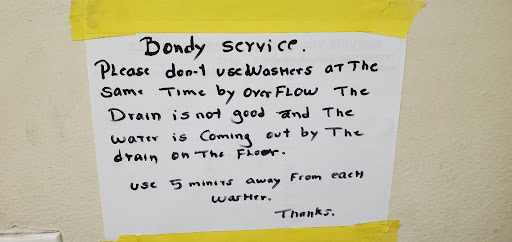 Bondy service.
Please don't use Washers at The
Same Time by overFlow The
Drain is not good and The
water is Coming out by The
drain on The Floor.
use 5 minits away From each
washer.
Thanks.